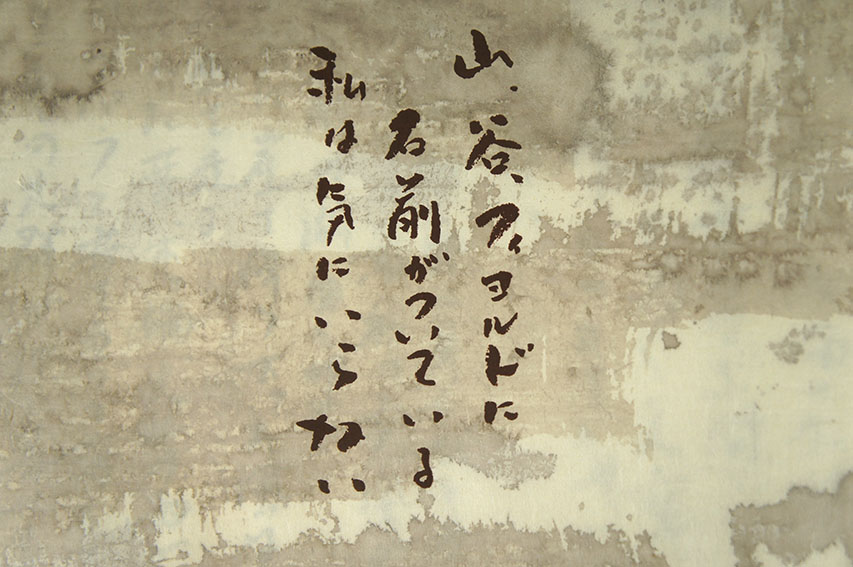 山、谷、フィヨルドに
名前がついている
私は気にいらない